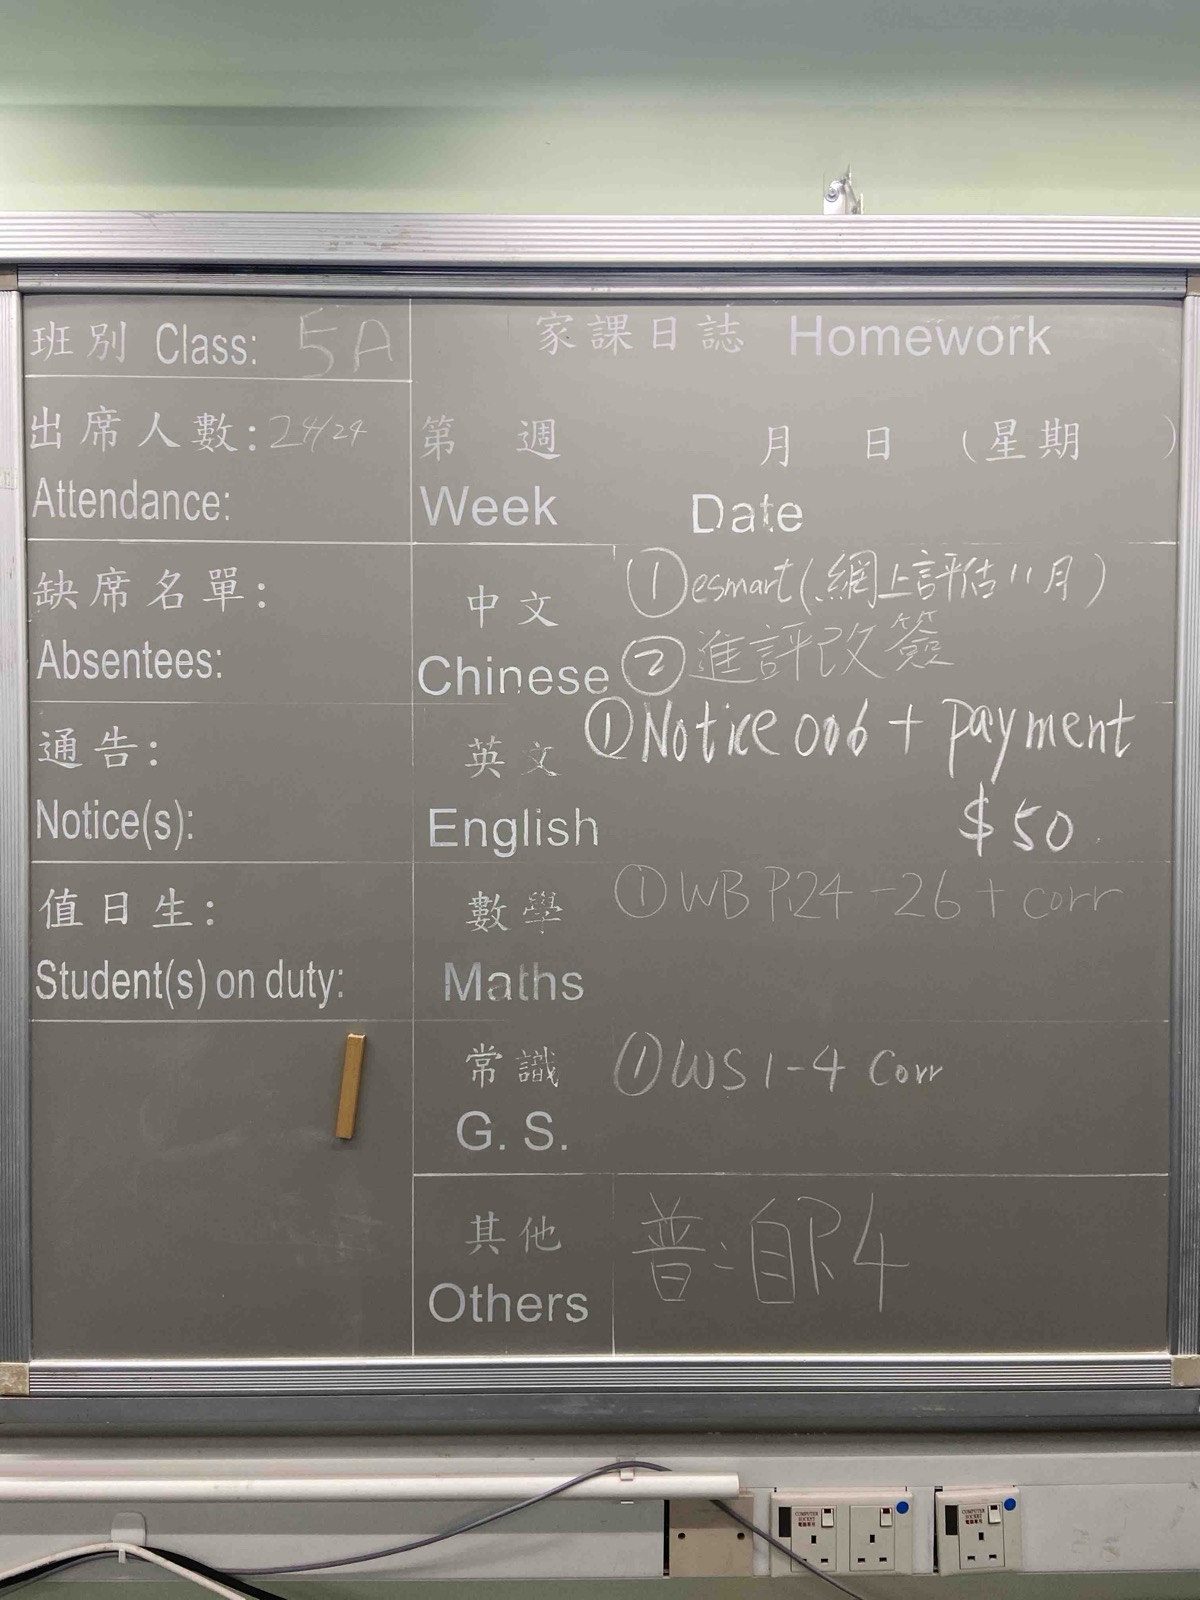 班別 Class: 5A
出席人數: 24/24
Attendance:
缺席名單:
Absentees:
通告:
Notice(s):
值日生:
Student(s) on duty:
家課日誌 Homework
第 週 月 日 (星期 )
Week Date
中文
Chinese
①esmart(網上評估11月)
②進評改簽
英文
English
①Notice 006 + payment
$50
數學
Maths
①WB P.24-26 + corr
常識
G. S.
①WS 1-4 Corr
其他
Others
普:自P.4
COMPUTER
SOCKET
電腦專用
COMPUTER
SOCKET
電腦專用